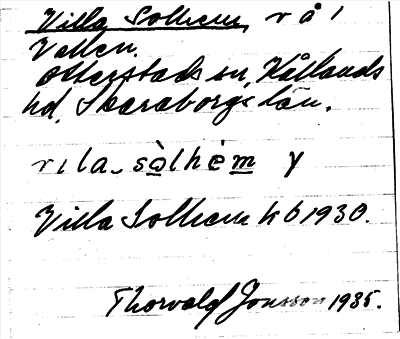 Villa Solhem, v å 1
Vallen.
Otterstads sn, Kållands
hd, Skaraborgs län.
vila-sòlhèm y
Villa Solhem kb 1930.
Thorvald Jonsson 1935.